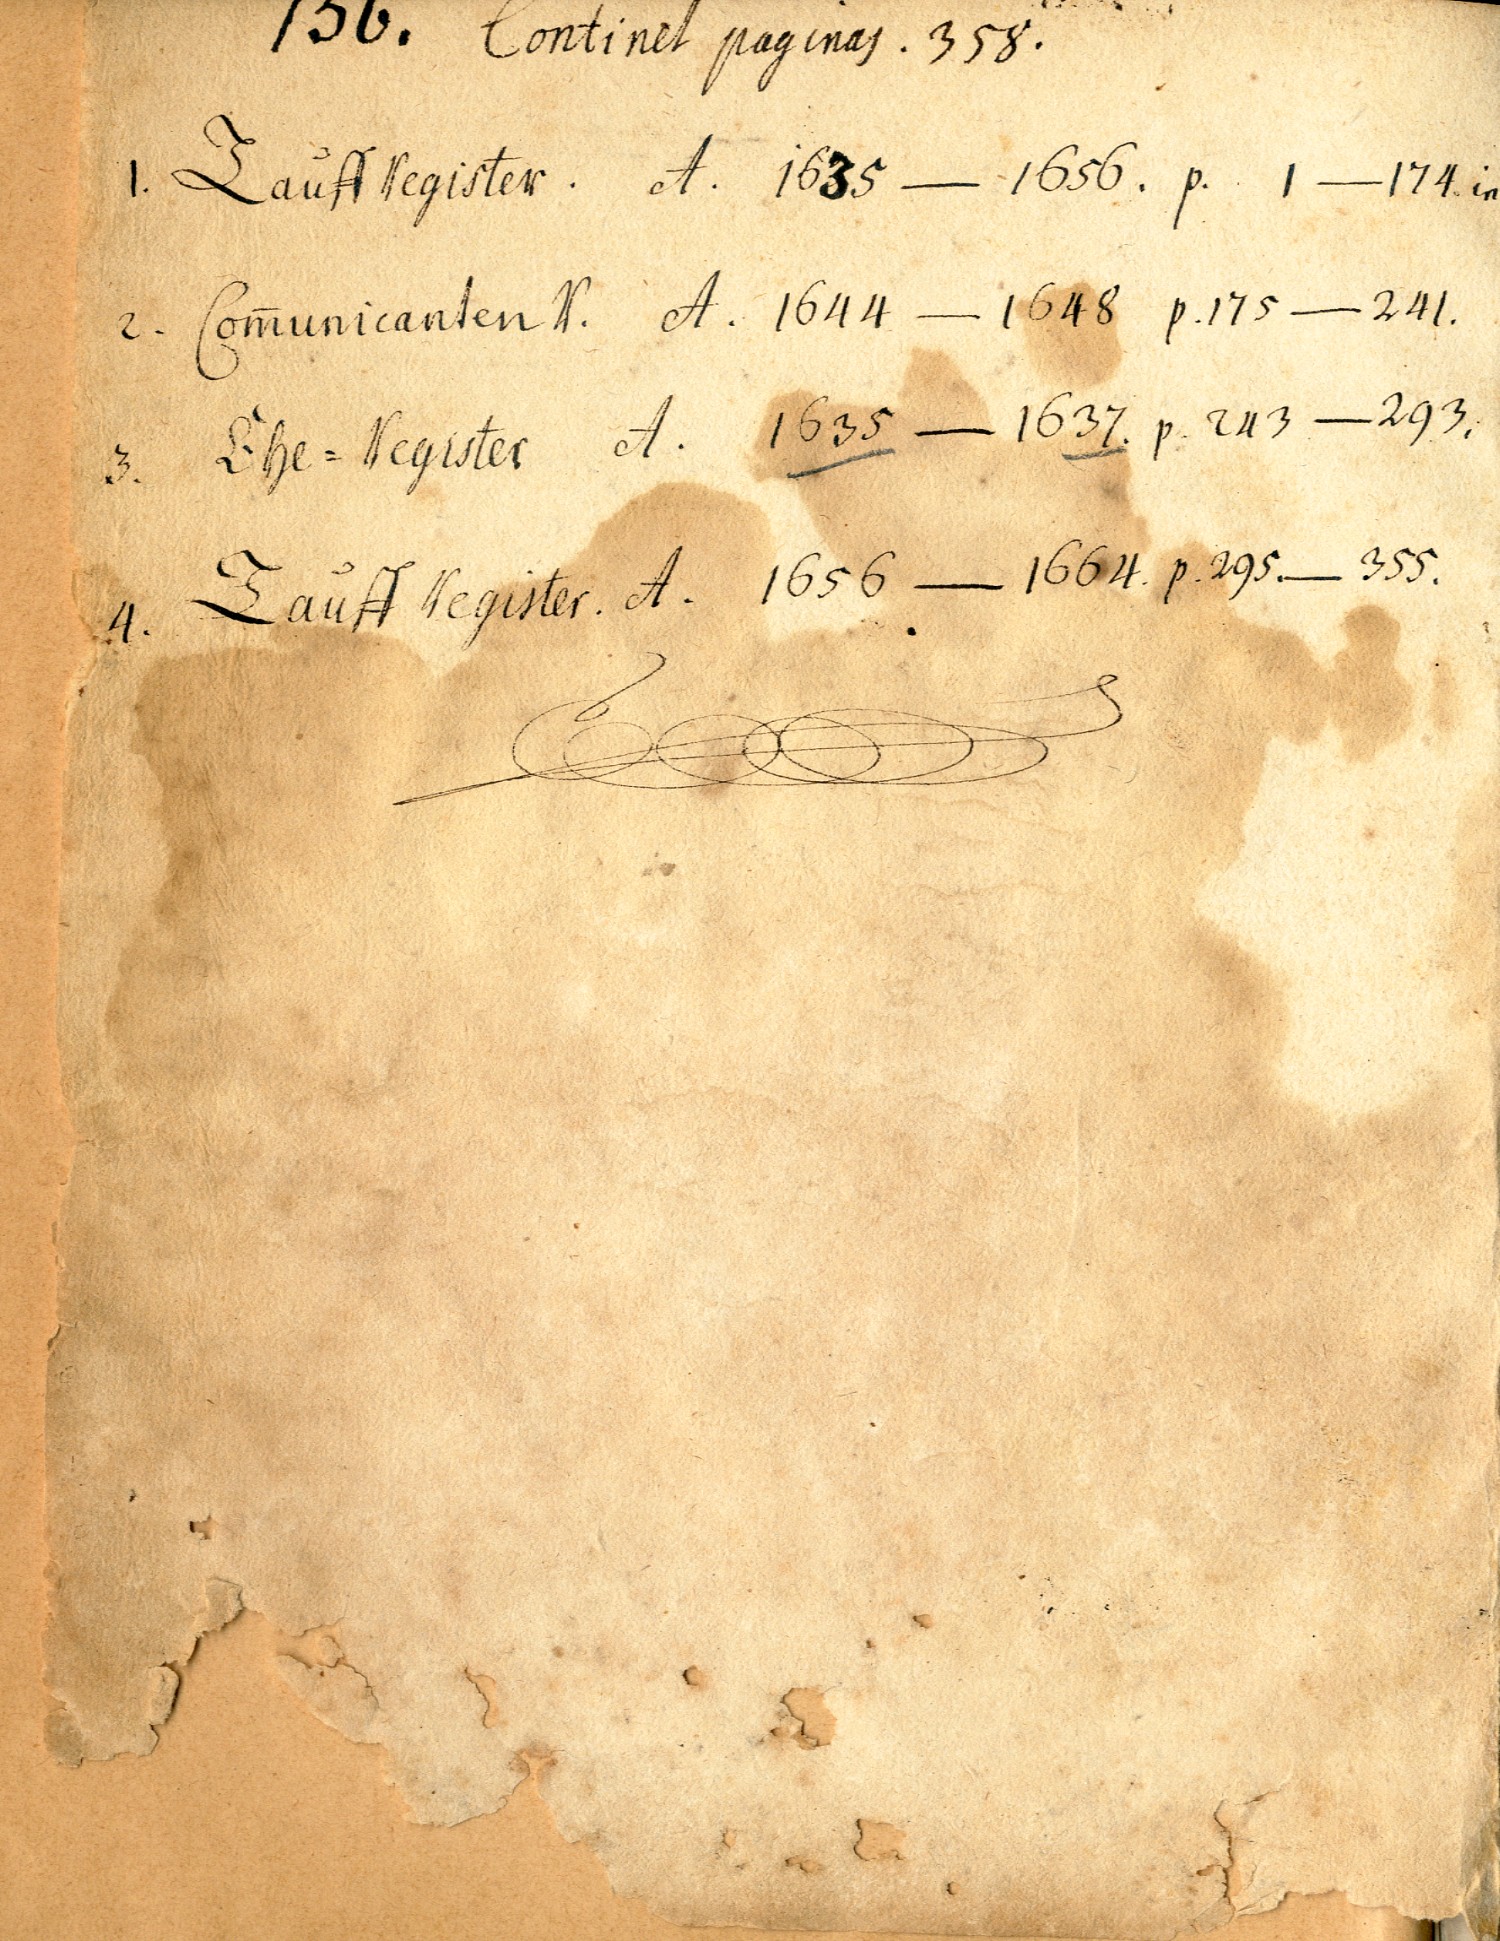 136. Continet paginas. 358.
1. Tauff Register. A. 1635 — 1656. p. 1 — 174. in
2. Com̄unicanten R. A. 1644 — 1648 p. 175 — 241.
3. Ehe = Register A. 1635 — 1637. p. 243 — 293.
4. Tauff Register. A. 1656 — 1664. p. 295. — 355.